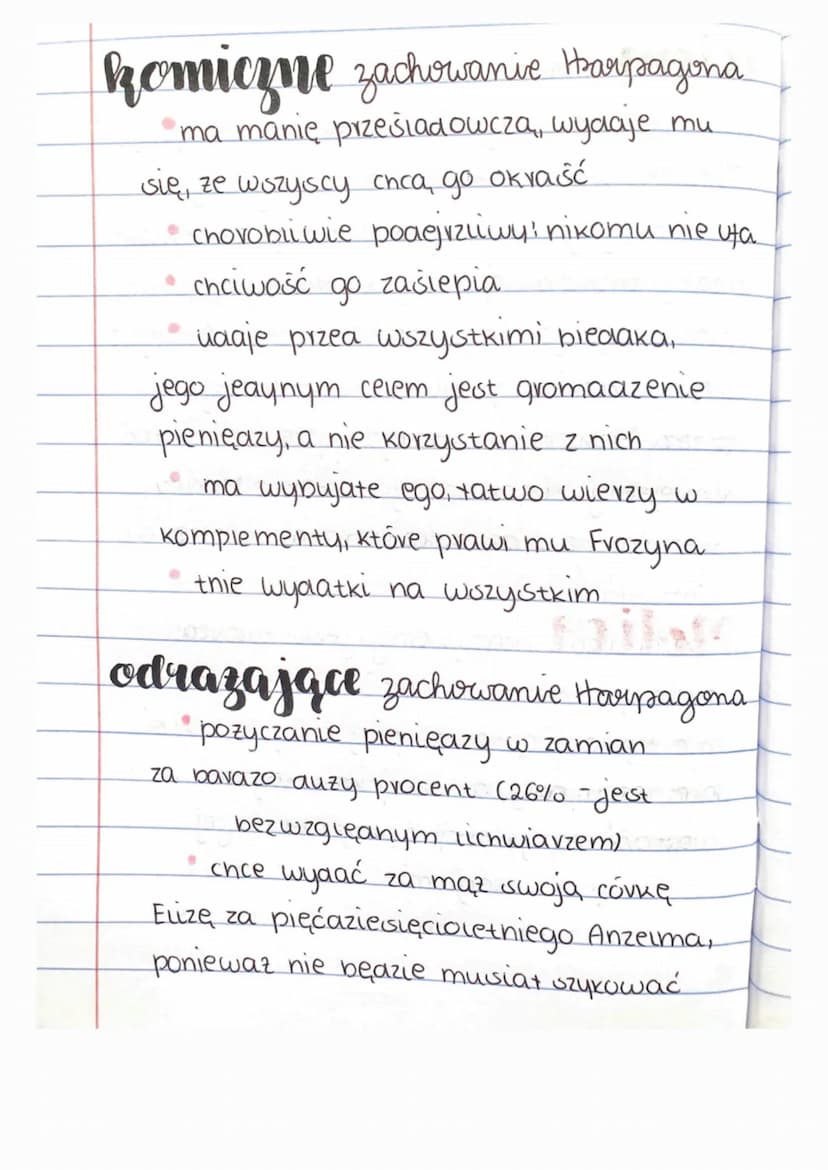 komiczne zachowanie Harpagona
• ma manię prześladowczą, wydaje mu
się, że wszyscy chcą go okraść
• chorobliwie podejrzliwy; nikomu nie ufa
• chciwość go zaślepia
• udaje przed wszystkimi biedaka,
jego jedynym celem jest gromadzenie
pieniędzy, a nie korzystanie z nich
• ma wybujałe ego, łatwo wierzy w
komplementy, które prawi mu Frozyna
• tnie wydatki na wszystkim
odrażające zachowanie Harpagona
• pożyczanie pieniędzy w zamian
za bardzo duży procent (26% - jest
bezwzględnym lichwiarzem)
• chce wydać za mąż swoją córkę
Elizę za pięćdziesięcioletniego Anzelma,
ponieważ nie będzie musiał szykować